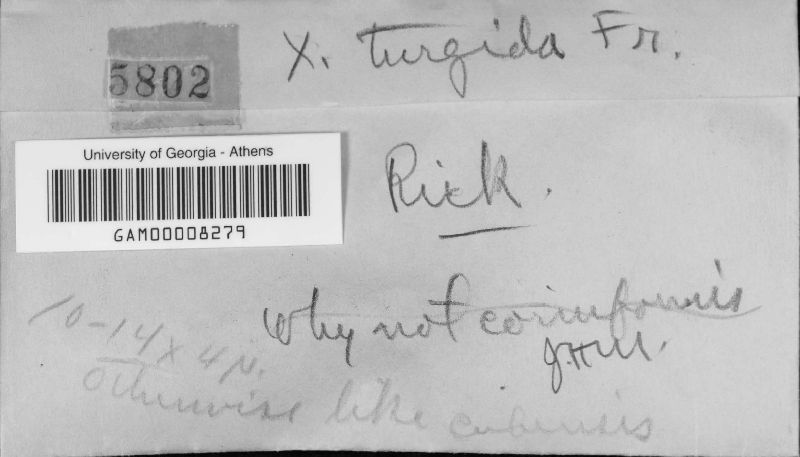 5802
X. turgida Fr.
University of Georgia - Athens
GAM00008279
Rick.
Why not corniformis
J.H.M.
10-14 x 4 µ.
Otherwise like cubensis